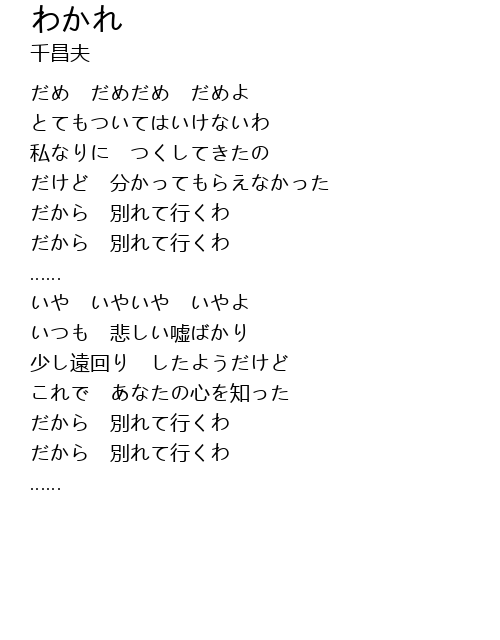 わかれ
千昌夫
だめ　だめだめ　だめよ
とてもついてはいけないわ
私なりに　つくしてきたの
だけど　分かってもらえなかった
だから　別れて行くわ
だから　別れて行くわ
……
いや　いやいや　いやよ
いつも　悲しい嘘ばかり
少し遠回り　したようだけど
これで　あなたの心を知った
だから　別れて行くわ
だから　別れて行くわ
……